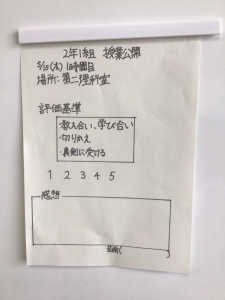 2年1組 授業公開
5/15(木) 1時間目
場所:第二理科室
評価基準
・教え合い、学び合い
・切りかえ
・真剣に受ける
1 2 3 4 5
感想